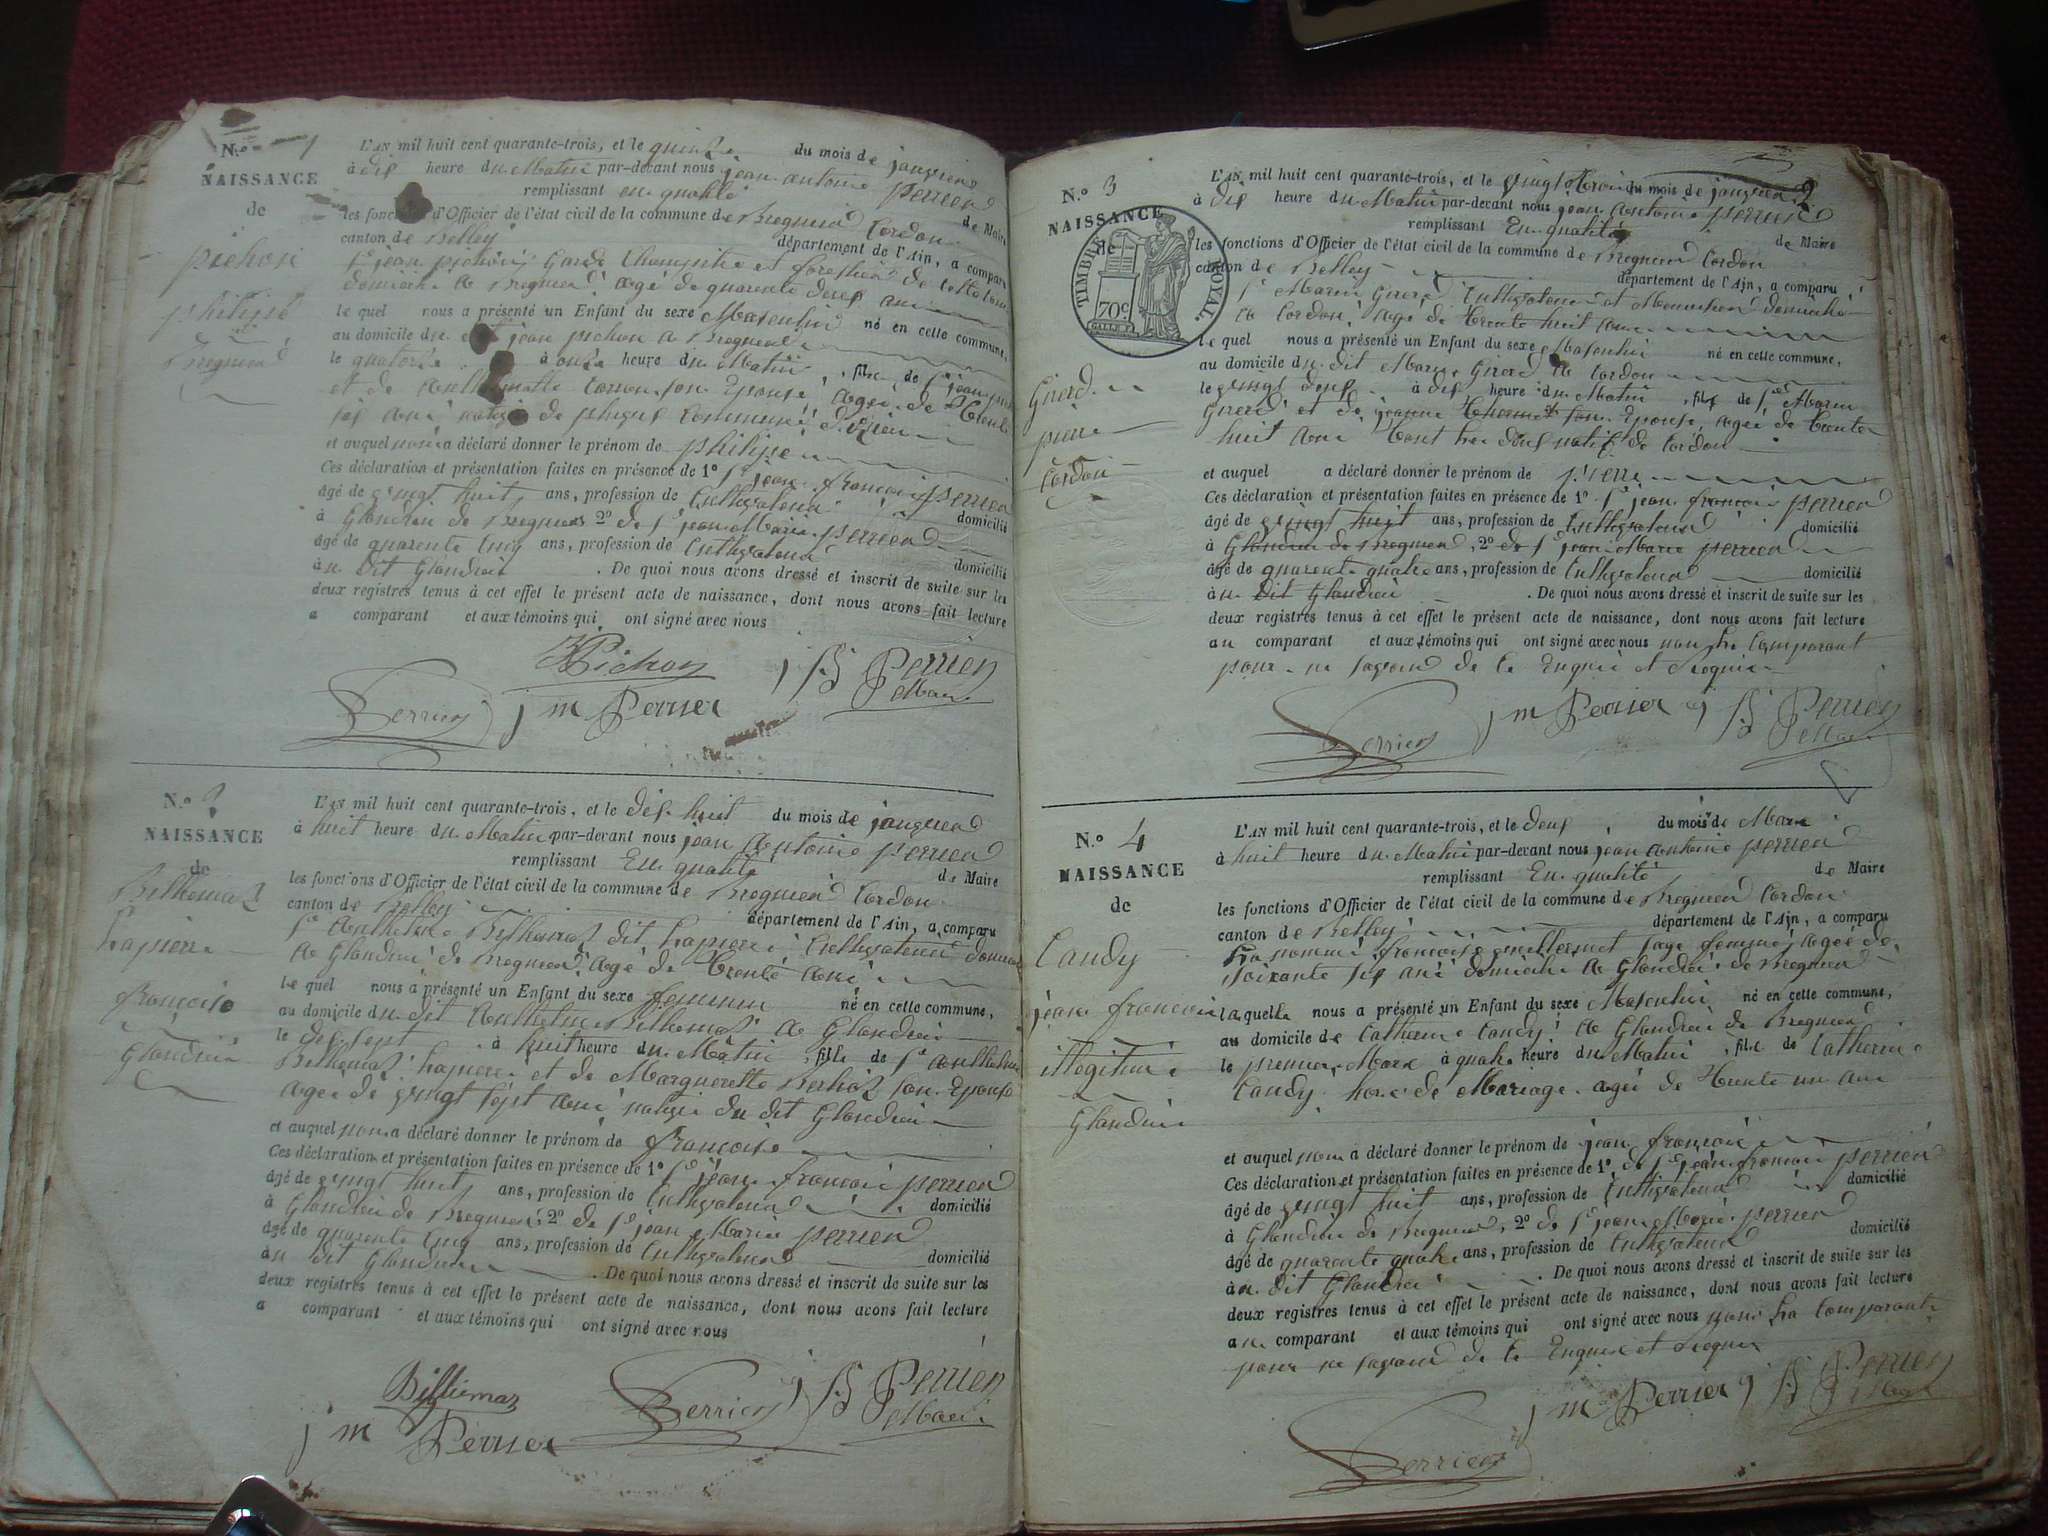 N.º 1
NAISSANCE
de
pichon
philippe
Bregnier
L'AN mil huit cent quarante-trois, et le quinze du mois de janvier
à dix heure du Matin par-devant nous jean antoine perrier
remplissant en qualité de Maire
les fonctions d'Officier de l'état civil de la commune de Bregnier Cordon
canton de Belley département de l'Ain, a comparu
Sr jean pichon Garde Champetre et forestier de cette
domicilié a Bregnier agé de quarente deux ans
le quel nous a présenté un Enfant du sexe Masculin né en cette commune,
au domicile du jean pichon a Bregnier
le quatorze à onze heure du Matin, fils de Sr jean
et de son Epouse, agée de trente
six ans
et auquel nous a déclaré donner le prénom de philippe
Ces déclaration et présentation faites en présence de 1º Sr jean françois perrier
âgé de vingt huit ans, profession de Cultivateur domicilié
à Glandieu de Bregnier 2º de Sr jean Marie perrier
âgé de quarente cinq ans, profession de Cultivateur domicilié
au dit Glandieu. De quoi nous avons dressé et inscrit de suite sur les
deux registres tenus à cet effet le présent acte de naissance, dont nous avons fait lecture
a comparant et aux témoins qui ont signé avec nous
Pichon
Perrier j m Perrier j A Perrier
Maire
N.º 2
NAISSANCE
de
Billiemaz
Lapierre
françoise
Glandieu
L'AN mil huit cent quarante-trois, et le dix huit du mois de janvier
à huit heure du Matin par-devant nous jean antoine perrier
remplissant En qualité de Maire
les fonctions d'Officier de l'état civil de la commune de Bregnier Cordon
canton de Belley département de l'Ain, a comparu
Sr Anthelme Billiemaz dit Lapierre Cultivateur
a Glandieu de Bregnier agé de trente ans
le quel nous a présenté un Enfant du sexe feminin né en cette commune,
au domicile du dit Anthelme Billiemaz a Glandieu
le dix sept à huit heure du Matin, fille de Sr Anthelme
Billiemaz Lapierre et de Marguerette Berlioz son Epouse
agée de vingt sept ans native du dit Glandieu
et auquel nous a déclaré donner le prénom de françoise
Ces déclaration et présentation faites en présence de 1º Sr jean françois perrier
âgé de vingt huit ans, profession de Cultivateur domicilié
à Glandieu de Bregnier, 2º de Sr jean Marie perrier
âgé de quarente cinq ans, profession de Cultivateur domicilié
au dit Glandieu. De quoi nous avons dressé et inscrit de suite sur les
deux registres tenus à cet effet le présent acte de naissance, dont nous avons fait lecture
a comparant et aux témoins qui ont signé avec nous
Billiemaz
j m Perrier Perrier j A Perrier
Maire
2
N.º 3
NAISSANCE
de
TIMBRE ROYAL
70c
Girerd
pierre
Cordon
L'AN mil huit cent quarante-trois, et le vingt trois du mois de janvier
à dix heure du Matin par-devant nous jean Antoine perrier
remplissant En qualité de Maire
les fonctions d'Officier de l'état civil de la commune de Bregnier Cordon
canton de Belley département de l'Ain, a comparu
Sr Marin Girerd Cultivateur et domicilié
a Cordon, agé de trente huit ans
le quel nous a présenté un Enfant du sexe Masculin né en cette commune,
au domicile du dit Marin Girerd a Cordon
le vingt deux à dix heure du Matin, fils de Sr Marin
Girerd et de jeanne son Epouse, agée de trente
huit ans tous les deux natif de Cordon
et auquel a déclaré donner le prénom de pierre
Ces déclaration et présentation faites en présence de 1º Sr jean françois perrier
âgé de vingt huit ans, profession de Cultivateur domicilié
à Glandieu de Bregnier, 2º de Sr jean Marie perrier
âgé de quarente quatre ans, profession de Cultivateur domicilié
au dit Glandieu. De quoi nous avons dressé et inscrit de suite sur les
deux registres tenus à cet effet le présent acte de naissance, dont nous avons fait lecture
au comparant et aux témoins qui ont signé avec nous non le Comparant
pour ne savoir de ce Enquis et Requis
Perrier j m Perrier j A Perrier
Maire
N.º 4
NAISSANCE
de
Candy
jean françois
illegitime
Glandieu
L'AN mil huit cent quarante-trois, et le deux du mois de Mars
à huit heure du Matin par-devant nous jean antoine perrier
remplissant En qualité de Maire
les fonctions d'Officier de l'état civil de la commune de Bregnier Cordon
canton de Belley département de l'Ain, a comparu
La nommé françoise guillermet sage femme, agée de
soixante six ans domicilié a Glandieu de Bregnier
laquelle nous a présenté un Enfant du sexe Masculin né en cette commune,
au domicile de Catherine Candy a Glandieu de Bregnier
le premier Mars à quatre heure du Matin, fils de Catherine
Candy, hors de Mariage, agée de trente un ans
et auquel nous a déclaré donner le prénom de jean françois
Ces déclaration et présentation faites en présence de 1º de Sr jean françois perrier
âgé de vingt huit ans, profession de Cultivateur domicilié
à Glandieu de Bregnier, 2º de Sr jean Marie perrier
âgé de quarente quatre ans, profession de Cultivateur domicilié
au dit Glandieu. De quoi nous avons dressé et inscrit de suite sur les
deux registres tenus à cet effet le présent acte de naissance, dont nous avons fait lecture
au comparant et aux témoins qui ont signé avec nous non La Comparante
pour ne savoir de ce Enquis et Requis
j m Perrier j A Perrier
Maire
Perrier